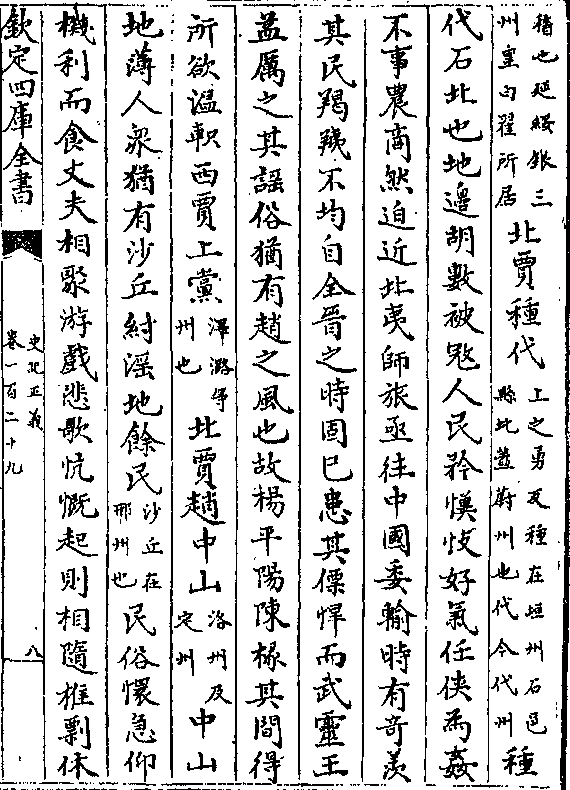 猾也延綏銀三州皇白翟所居北賈種代上之勇反種在垣州石邑縣北蓋蔚州也代今代州種
代石北也地邊胡數被㓂人民矜懻忮好氣任俠為姦
不事農商然迫近北夷師旅亟往中國委輸時有竒羨
其民羯羠不均自全晉之時固已患其僄悍而武靈王
益厲之其謡俗猶有趙之風也故楊平陽陳椽其間得
所欲温軹西賈上黨澤潞等州也北賈趙中山洛州及定州中山
地薄人衆猶有沙丘紂滛地餘民沙丘在邢州也民俗懁急仰
機利而食丈夫相聚游戲悲歌忼慨起則相隨椎剽休
欽定四庫全書
史記正義
卷一百二十九
八